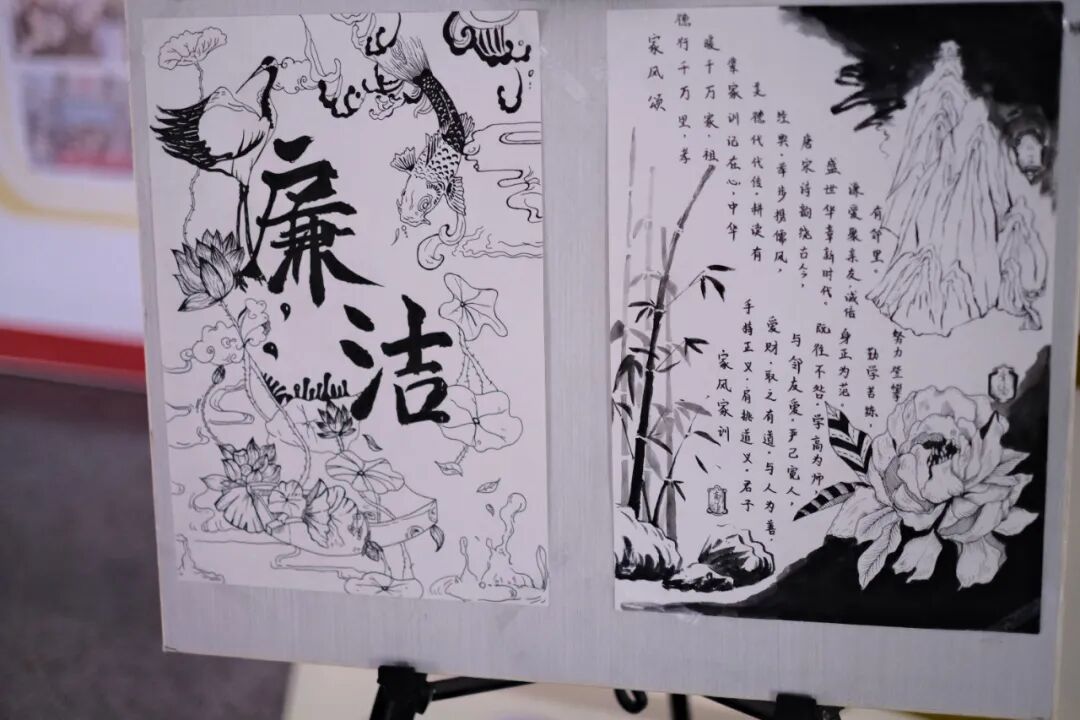 廉
洁
家风颂
德行千万里，孝
暖千万家，祖
辈家训记在心，中华
美德代代传，耕读有
经典，举步携儒风，
唐宋诗韵绕古今，
盛世华章新时代。
谦爱聚亲友，诚信
有邻里。
家风家训
手持正义，肩挑道义，君子
爱财，取之有道，与人为善，
与邻友爱，严己宽人，
既往不咎，学高为师
身正为范。
勤学苦练，
努力攀